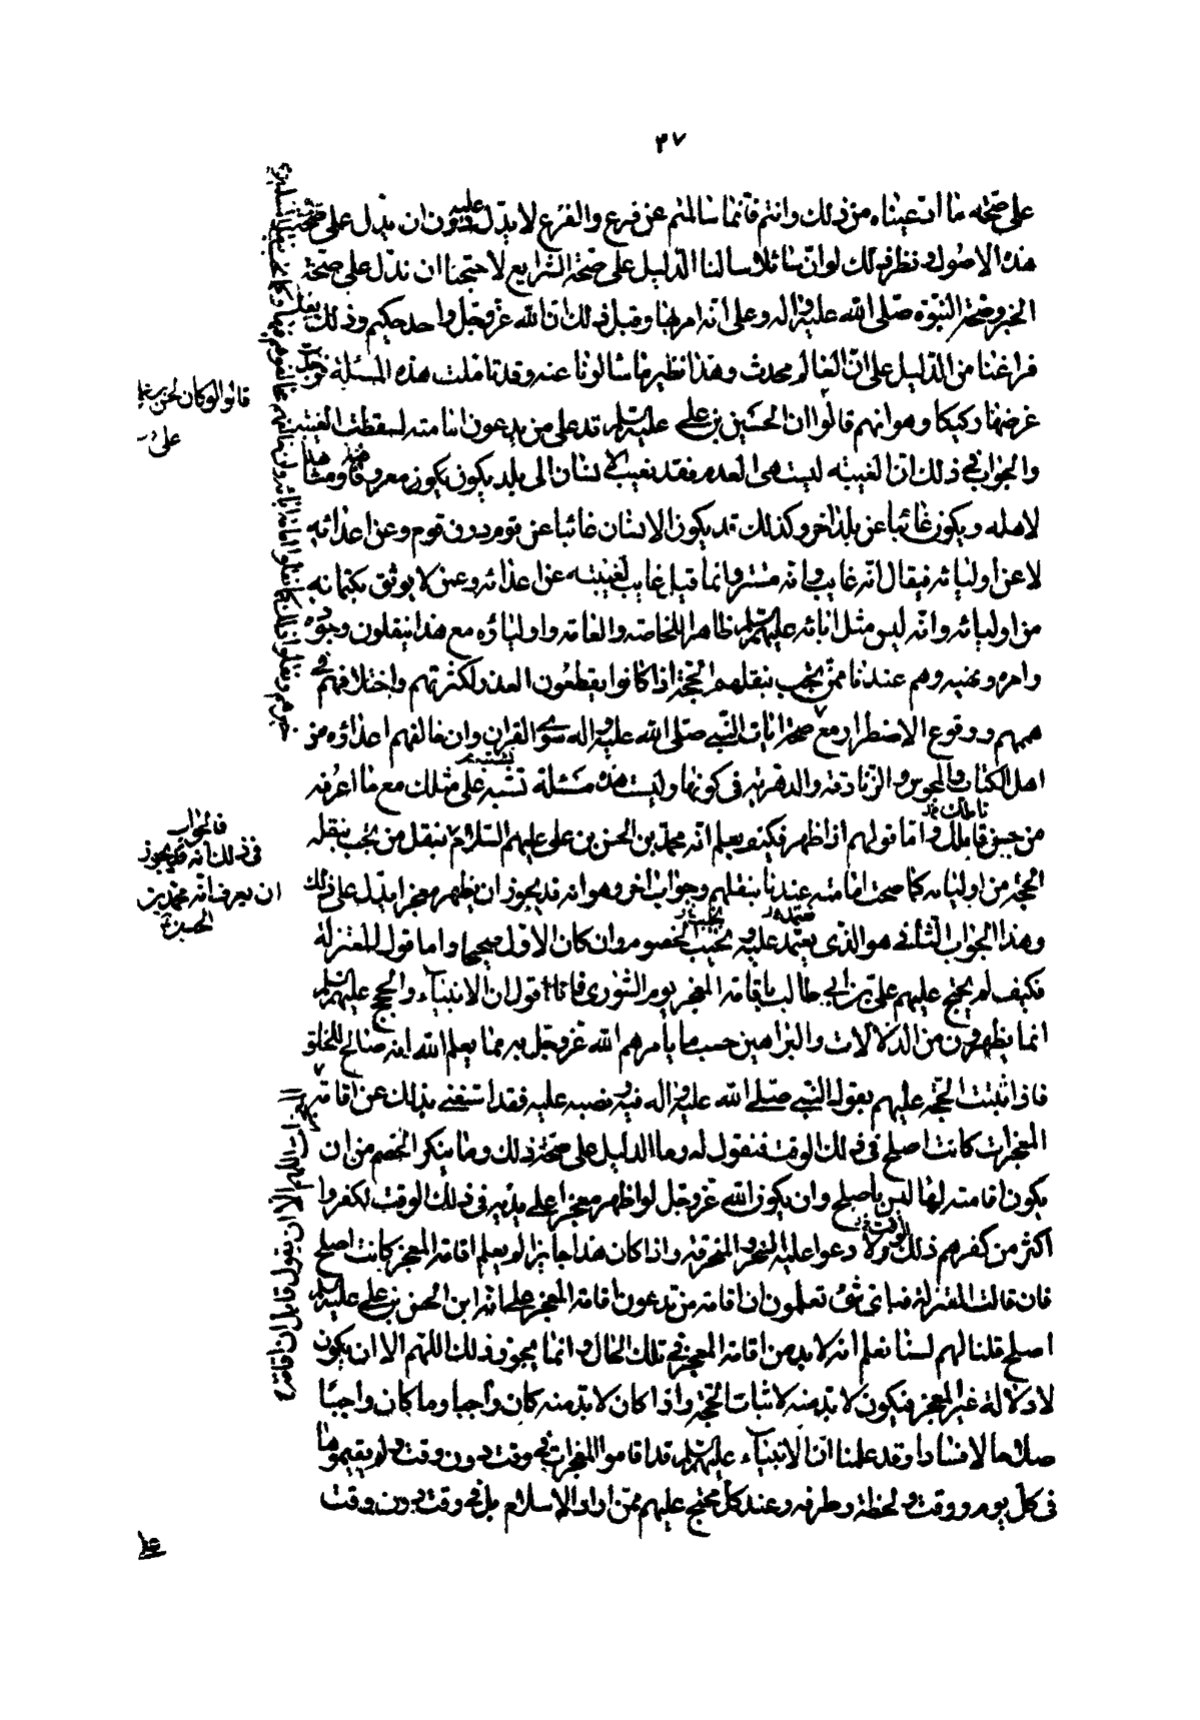 ٣٧
على صحته ما ادعيناه من ذلك وانتم فانما سالتم عن فرع والفرع لا يدل عليه دون ان يدل على صحة
هذه الاصول و نظير ذلك لو ان سائلا سالنا الدليل على صحة الشرايع لاحتجنا ان ندل على صحة
الخبر وصحة النبوة صلى الله عليه واله وعلى انه امر بها وقبل ذلك ان الله عز وجل واحد حكيم وذلك بعد
فراغنا من الدليل على ان العالم محدث وهذا نظير ما سالونا عنه وقد تاملت هذه المسئلة فوجدت
غرضها ركيكا وهو انهم قالوا ان الحسين بن علي عليه السلم قد على من يدعون امامته لسقطت الغيبة
والجواب في ذلك ان الغيبة ليست هى العدم فقد تغيب الانسان الى بلد يكون يكون معروفا ومشاهدا
لاهله ويكون غائبا عن بلد اخر وكذلك قد يكون الانسان غائبا عن قوم دون قوم وعن اعدائه
لا عن اوليائه فيقال انه غايب وانه مستتر وانما قيل غايب لغيبته عن اعدائه وعمن لا يوثق بكتمانه
من اوليائه وانه ليس مثل ابائه عليهم السلم ظاهرا للخاصة والعامة واولياؤه مع هذا ينقلون وجوده
وامره ونهيه وهم عندنا ممن يجب بنقلهم الحجة اذا كانوا يقطعون العذر لكثرتهم واختلافهم في
هممهم ووقوع الاضطرار مع صحة ايات النبي صلى الله عليه واله سوى القران وان خالفهم اعداؤه من
اهل الكتاب والمجوس والزنادقة والدهرية فى كونها وليست هذه مسئلة تشبه على مثلك مع ما اعرفه
من حسن تاملك واما قولهم اذا ظهر فكيف يعلم انه محمد بن الحسن بن على عليهم السلام بنقل من يجب بنقله
الحجة من اوليائه كما صحت امامته عندنا بنقلهم وجواب اخر وهو انه قد يجوز ان يظهر معجزا يدل على ذلك
وهذا الجواب الثانى هو الذى يعتمد عليه و يجيب الخصوم وان كان الاول صحيحا واما قول المعتزلة
فكيف لم يحتج عليهم على بن ابي طالب باقامة المعجز يوم الشورى فانا اقول ان الانبياء والحجج عليهم السلم
انما يظهرون من الدلالات والبراهين حسب ما يامرهم الله عز وجل به مما يعلم الله انه صالح للخلق
فاذا ثبتت الحجة عليهم بقول النبي صلى الله عليه واله فيه ونصبه عليه فقد استغنى بذلك عن اقامة
المعجزات كانت اصلح فى ذلك الوقت فنقول له وما الدليل على صحة ذلك وما ينكر الخصم من ان
يكون اقامته لها ليس باصلح وان يكون الله عز وجل لو اظهر معجزا على يديه فى ذلك الوقت لكفروا
اكثر من كفرهم ذلك ولادعوا عليه السحر والمخرقة واذا كان هذا جايزا لم يعلم اقامة المعجز كانت اصلح
فان قالت المعتزلة فباى شئ تعلمون ان اقامة من تدعون اقامة المعجز على انه ابن الحسن بن على عليه السلم
اصلح قلنا لهم لسنا نعلم انه لا بد من اقامة المعجز في تلك الحال وانما يجوز ذلك اللهم الا ان يكون
لا دلالة غير المعجز فيكون لا بد منه لاثبات الحجة واذا كان لا بد منه كان واجبا وما كان واجبا
صلاحا لا فسادا وقد علمنا ان الانبياء عليهم السلم قد اقاموا المعجزات في وقت دون وقت ولم يقيموها
فى كل يوم و وقت و لحظة وطرفة وعند كل محتج عليهم ممن اراد الاسلام بل في وقت دون وقت
قالوا لو كان لحسن بن علي
فالجواب
فى ذلك انه قد يجوز
ان يعرف انه محمد بن
الحسن
المعجزات اللهم الا ان يقول قايل ان اقامة